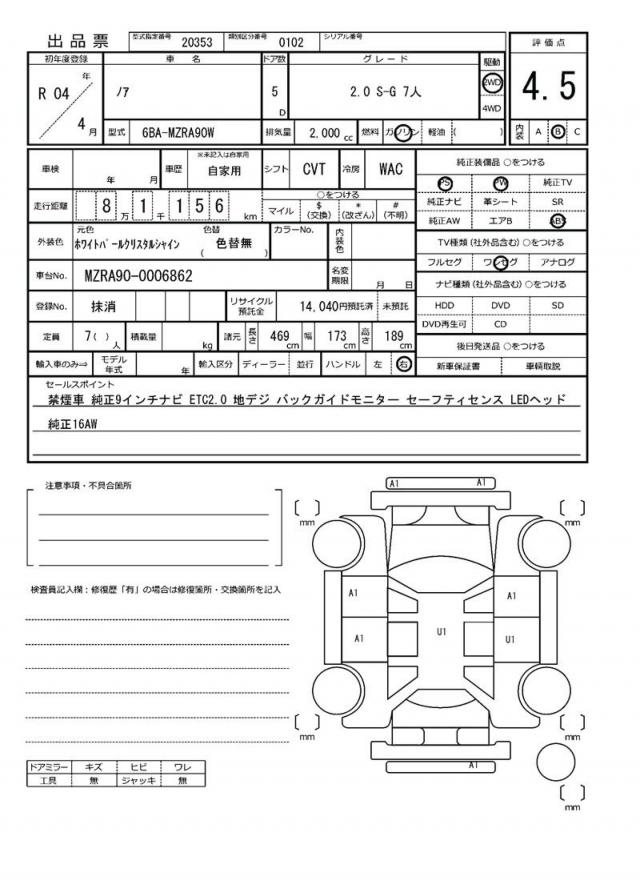 出品票 型式指定番号 20353 類別区分番号 0102 シリアル番号
初年度登録 車名 ドア数 グレード 駆動 評価点
R 04 年 4 月 ノア 5 D 2.0 S-G 7人 2WD 4WD 4.5
型式 6BA-MZRA90W 排気量 2,000 cc 燃料 ガソリン 軽油 ( ) 内装 A B C
車検 年 月 車歴 ※未記入は自家用 自家用 シフト CVT 冷房 WAC 純正装備品 ○をつける
PS PW 純正TV
走行距離 8 万 1 千 1 5 6 km ○をつける マイル $ (交換) * (改ざん) # (不明) 純正ナビ 革シート SR
純正AW エアB ABS
外装色 元色 ホワイトパールクリスタルシャイン 色替 ( 色替無 ) カラーNo. 内装色 TV種類 (社外品含む) ○をつける
フルセグ ワンセグ アナログ
車台No. MZRA90-0006862 名変期限 月 日 ナビ種類 (社外品含む) ○をつける
登録No. 抹消 リサイクル預託金 14,040円預託済 未預託 HDD DVD SD
DVD再生可 CD
定員 7( ) 人 積載量 kg 諸元 長さ 469 cm 幅 173 cm 高さ 189 cm 後日発送品 ○をつける
輸入車のみ⇒ モデル年式 年 輸入区分 ディーラー 並行 ハンドル 左 右 新車保証書 車輌取説
セールスポイント
禁煙車 純正9インチナビ ETC2.0 地デジ バックガイドモニター セーフティセンス LEDヘッド
純正16AW
注意事項・不具合箇所
検査員記入欄：修復歴「有」の場合は修復箇所・交換箇所を記入
A1 A1
mm mm
A1 A1
A1 U1 U1
mm mm
A1
mm
ドアミラー キズ ヒビ ワレ
工具 無 ジャッキ 無